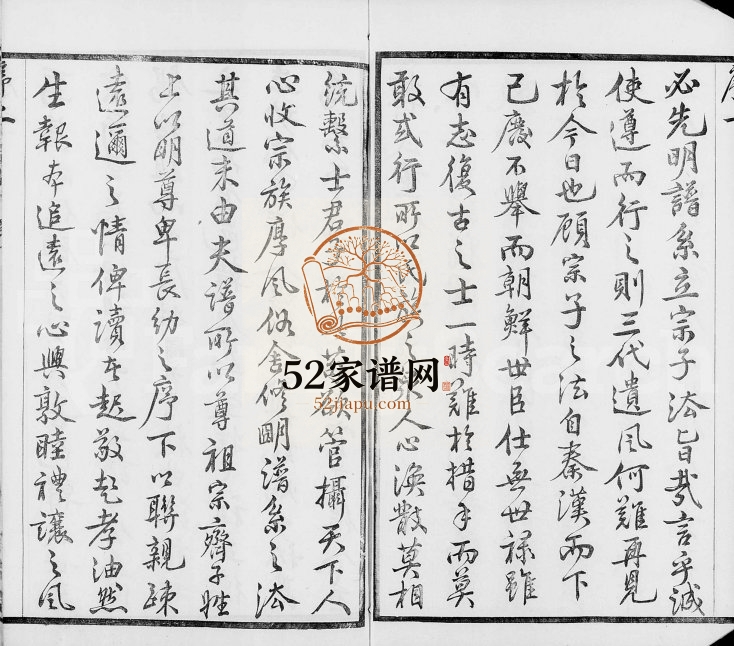 序一
必先明譜系立宗子法旨哉言乎誠
使遵而行之則三代遺風何難再見
於今日也顧宗子之法自秦漢而下
已廢不舉而朝鮮世臣仕無世祿雖
有志復古之士一時難於措手而莫
敢或行所以氏族之人心渙散莫相
統繫士君子管攝天下人
心收宗族厚風俗舍修明譜系之法
其道末由夫譜所以尊祖宗齊子姓
上以明尊卑長幼之序下以聯親疎
遠邇之情俾讀者起敬起孝油然
生報本追遠之心興敦睦禮讓之風
序二
52家谱网
52jiapu.com